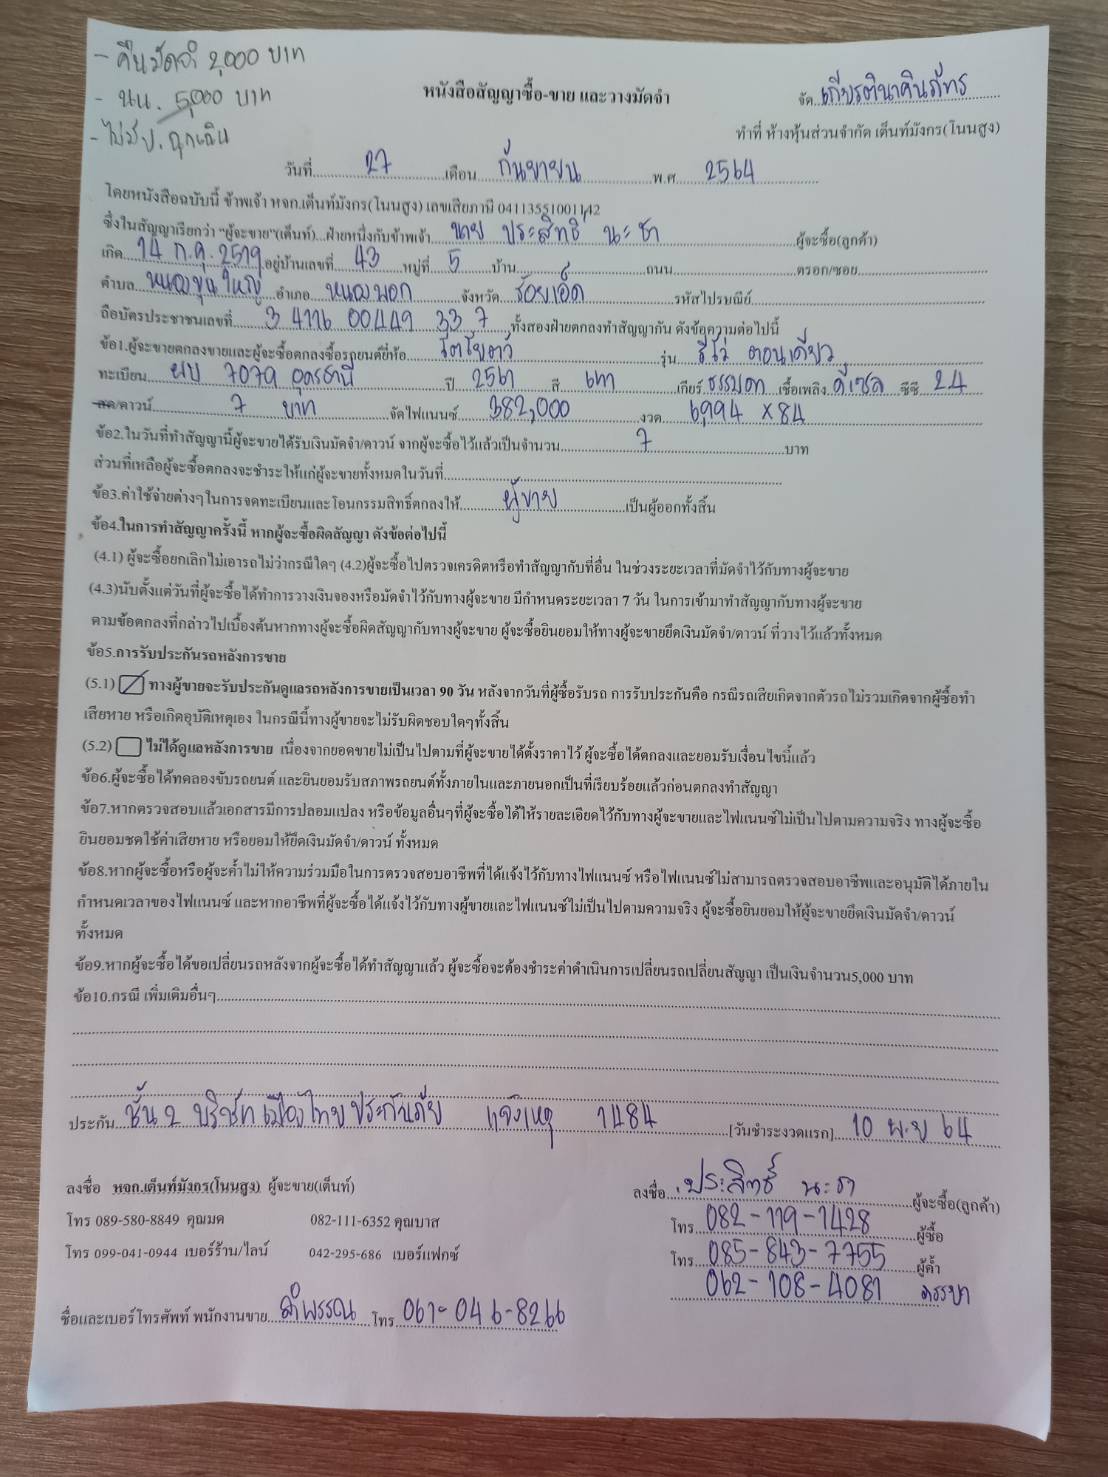 - คืนมัดจำ 2,000 บาท
- นน. 5,000 บาท
- ไม่มีป. ฉุกเฉิน
หนังสือสัญญาซื้อ-ขาย และวางมัดจำ
จัด..เกียรตินาคินภัทร
ทำที่ ห้างหุ้นส่วนจำกัด เต็นท์มังกร(โนนสูง)
วันที่ 27 เดือน กันยายน พ.ศ. 2564
โดยหนังสือฉบับนี้ ข้าพเจ้า หจก.เต็นท์มังกร(โนนสูง) เลขเสียภาษี 04113551001142
ซึ่งในสัญญาเรียกว่า "ผู้จะขาย"(เต็นท์)...ฝ่ายหนึ่งกับข้าพเจ้า นาย ประสิทธิ์ นะธา ผู้จะซื้อ(ลูกค้า)
เกิด 14 ก.ค. 2519 อยู่บ้านเลขที่ 43 หมู่ที่ 5 บ้าน ถนน ตรอก/ซอย
ตำบล หนองขุ่นใหญ่ อำเภอ หนองพอก จังหวัด ร้อยเอ็ด รหัสไปรษณีย์
ถือบัตรประชาชนเลขที่ 3 4116 00449 33 7 ทั้งสองฝ่ายตกลงทำสัญญากัน ดังข้อความต่อไปนี้
ข้อ1.ผู้จะขายตกลงขายและผู้จะซื้อตกลงซื้อรถยนต์ยี่ห้อ โตโยต้า รุ่น รีโว่ ตอนเดียว
ทะเบียน ผบ 7079 อุดรธานี ปี 2561 สี เทา เกียร์ ธรรมดา เชื้อเพลิง ดีเซล ซีซี 2.4
สด/ดาวน์ 7 บาท จัดไฟแนนซ์ 382,000 งวด 6,994 x 84
ข้อ2.ในวันที่ทำสัญญานี้ผู้จะขายได้รับเงินมัดจำ/ดาวน์ จากผู้จะซื้อไว้แล้วเป็นจำนวน 7 บาท
ส่วนที่เหลือผู้จะซื้อตกลงจะชำระให้แก่ผู้จะขายทั้งหมดในวันที่
ข้อ3.ค่าใช้จ่ายต่างๆในการจดทะเบียนและโอนกรรมสิทธิ์ตกลงให้ ผู้ขาย เป็นผู้ออกทั้งสิ้น
ข้อ4.ในการทำสัญญาครั้งนี้ หากผู้จะซื้อผิดสัญญา ดังข้อต่อไปนี้
(4.1) ผู้จะซื้อยกเลิกไม่เอารถไม่ว่ากรณีใดๆ (4.2)ผู้จะซื้อไปตรวจเครดิตหรือทำสัญญากับที่อื่น ในช่วงระยะเวลาที่มัดจำไว้กับทางผู้จะขาย
(4.3)นับตั้งแต่วันที่ผู้จะซื้อได้ทำการวางเงินจองหรือมัดจำไว้กับทางผู้จะขาย มีกำหนดระยะเวลา 7 วัน ในการเข้ามาทำสัญญากับทางผู้จะขาย
ตามข้อตกลงที่กล่าวไปเบื้องต้นหากทางผู้จะซื้อผิดสัญญากับทางผู้จะขาย ผู้จะซื้อยินยอมให้ทางผู้จะขายยึดเงินมัดจำ/ดาวน์ ที่วางไว้แล้วทั้งหมด
ข้อ5.การรับประกันรถหลังการขาย
(5.1) ทางผู้ขายจะรับประกันดูแลรถหลังการขายเป็นเวลา 90 วัน หลังจากวันที่ผู้ซื้อรับรถ การรับประกันคือ กรณีรถเสียเกิดจากตัวรถไม่รวมเกิดจากผู้ซื้อทำ
เสียหาย หรือเกิดอุบัติเหตุเอง ในกรณีนี้ทางผู้ขายจะไม่รับผิดชอบใดๆทั้งสิ้น
(5.2) ไม่ได้ดูแลหลังการขาย เนื่องจากยอดขายไม่เป็นไปตามที่ผู้จะขายได้ตั้งราคาไว้ ผู้จะซื้อได้ตกลงและยอมรับเงื่อนไขนี้แล้ว
ข้อ6.ผู้จะซื้อได้ทดลองขับรถยนต์ และยินยอมรับสภาพรถยนต์ทั้งภายในและภายนอกเป็นที่เรียบร้อยแล้วก่อนตกลงทำสัญญา
ข้อ7.หากตรวจสอบแล้วเอกสารมีการปลอมแปลง หรือข้อมูลอื่นๆที่ผู้จะซื้อได้ให้รายละเอียดไว้กับทางผู้จะขายและไฟแนนซ์ไม่เป็นไปตามความจริง ทางผู้จะซื้อ
ยินยอมชดใช้ค่าเสียหาย หรือยอมให้ยึดเงินมัดจำ/ดาวน์ ทั้งหมด
ข้อ8.หากผู้จะซื้อหรือผู้จะค้ำไม่ให้ความร่วมมือในการตรวจสอบอาชีพที่ได้แจ้งไว้กับทางไฟแนนซ์ หรือไฟแนนซ์ไม่สามารถตรวจสอบอาชีพและอนุมัติได้ภายใน
กำหนดเวลาของไฟแนนซ์ และหากอาชีพที่ผู้จะซื้อได้แจ้งไว้กับทางผู้ขายและไฟแนนซ์ไม่เป็นไปตามความจริง ผู้จะซื้อยินยอมให้ผู้จะขายยึดเงินมัดจำ/ดาวน์
ทั้งหมด
ข้อ9.หากผู้จะซื้อได้ขอเปลี่ยนรถหลังจากผู้จะซื้อได้ทำสัญญาแล้ว ผู้จะซื้อจะต้องชำระค่าดำเนินการเปลี่ยนรถเปลี่ยนสัญญา เป็นเงินจำนวน5,000 บาท
ข้อ10.กรณี เพิ่มเติมอื่นๆ
ประกัน ชั้น 2 บริษัท เมืองไทยประกันภัย แจ้งเหตุ 1484 [วันชำระงวดแรก] 10 พ.ย 64
ลงชื่อ หจก.เต็นท์มังกร(โนนสูง) ผู้จะขาย(เต็นท์) ลงชื่อ ประสิทธิ์ นะธา ผู้จะซื้อ(ลูกค้า)
โทร 089-580-8849 คุณมด 082-111-6352 คุณบาส โทร 082-119-1428 ผู้ซื้อ
โทร 099-041-0944 เบอร์ร้าน/ไลน์ 042-295-686 เบอร์แฟกซ์ โทร 085-843-7755 ผู้ค้ำ
062-108-4081 ภรรยา
ชื่อและเบอร์โทรศัพท์ พนักงานขาย ลำพรรณ โทร 061-046-8266